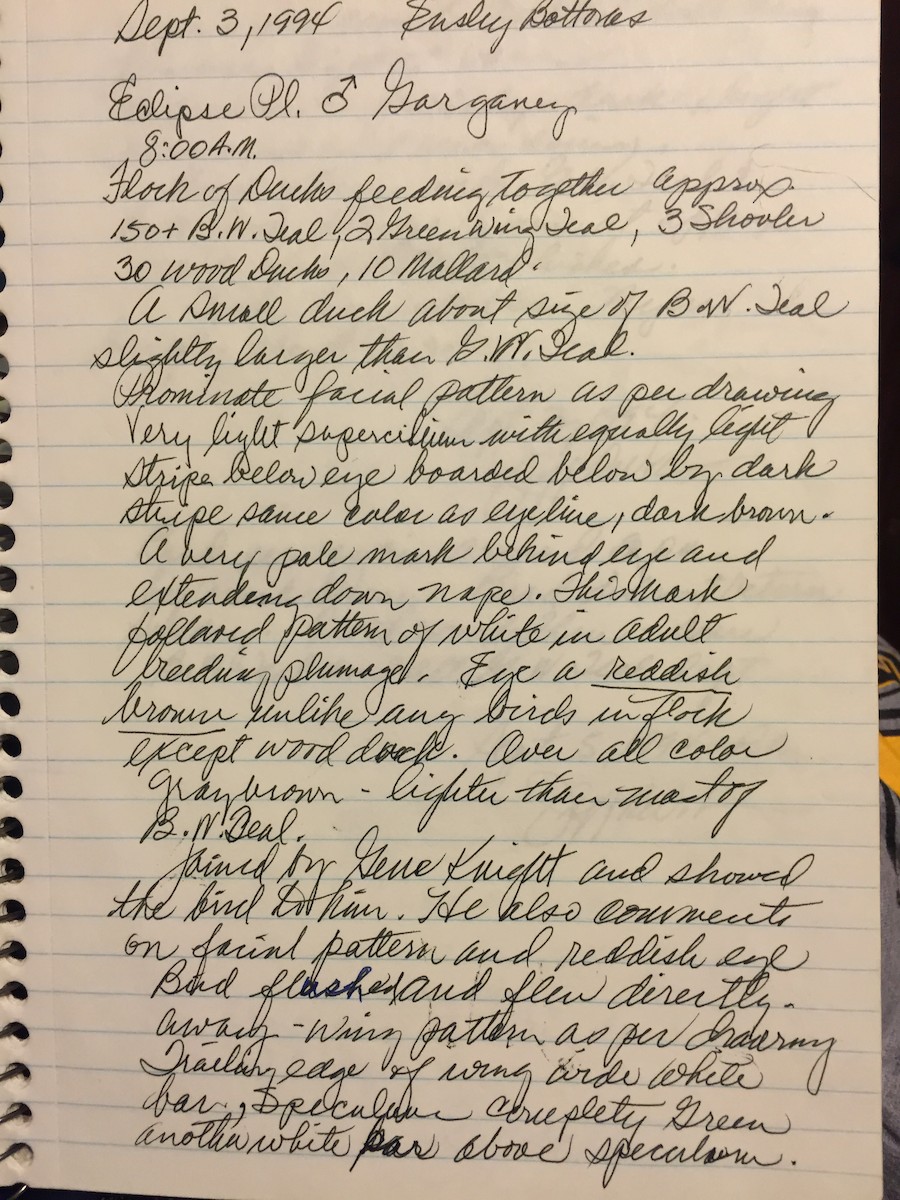 Sept. 3, 1994 Ensley Bottoms
Eclipse Pl. ♂ Garganey
8:00 A.M.
Flock of Ducks feeding together approx.
150+ B.W. Teal, 2 Green Wing Teal, 3 Shovler
30 wood Ducks, 10 Mallard.
A small duck about size of B.W. Teal
slightly larger than G.W. Teal.
Prominate facial pattern as per drawing
Very light supercilium with equally light
stripe below eye boarded below by dark
stripe same color as eyeline, dark brown.
A very pale mark behind eye and
extending down nape. This mark
followed pattern of white in adult
breeding plumage. Eye a reddish
brown unlike any birds in flock
except wood duck. Over all color
gray brown - lighter than most of
B.W. Teal.
Joined by Gene Knight and showed
the bird to him. He also comments
on facial pattern and reddish eye
Bird flushed and flew directly
away - wing pattern as per drawing
Trailing edge of wing wide white
bar, Speculum complety Green
another white bar above speculum.